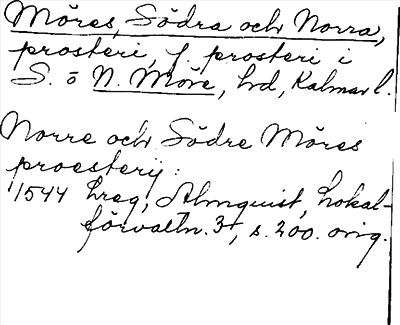 Möres, Södra och Norra,
prosteri, f. prosteri i
S. o N. Möre, hd, Kalmar l.
Norre och Södre Möres
proestery:
1544 Lreg, Almquist, Lokal-
förvaltn. 3, s. 200. orig.